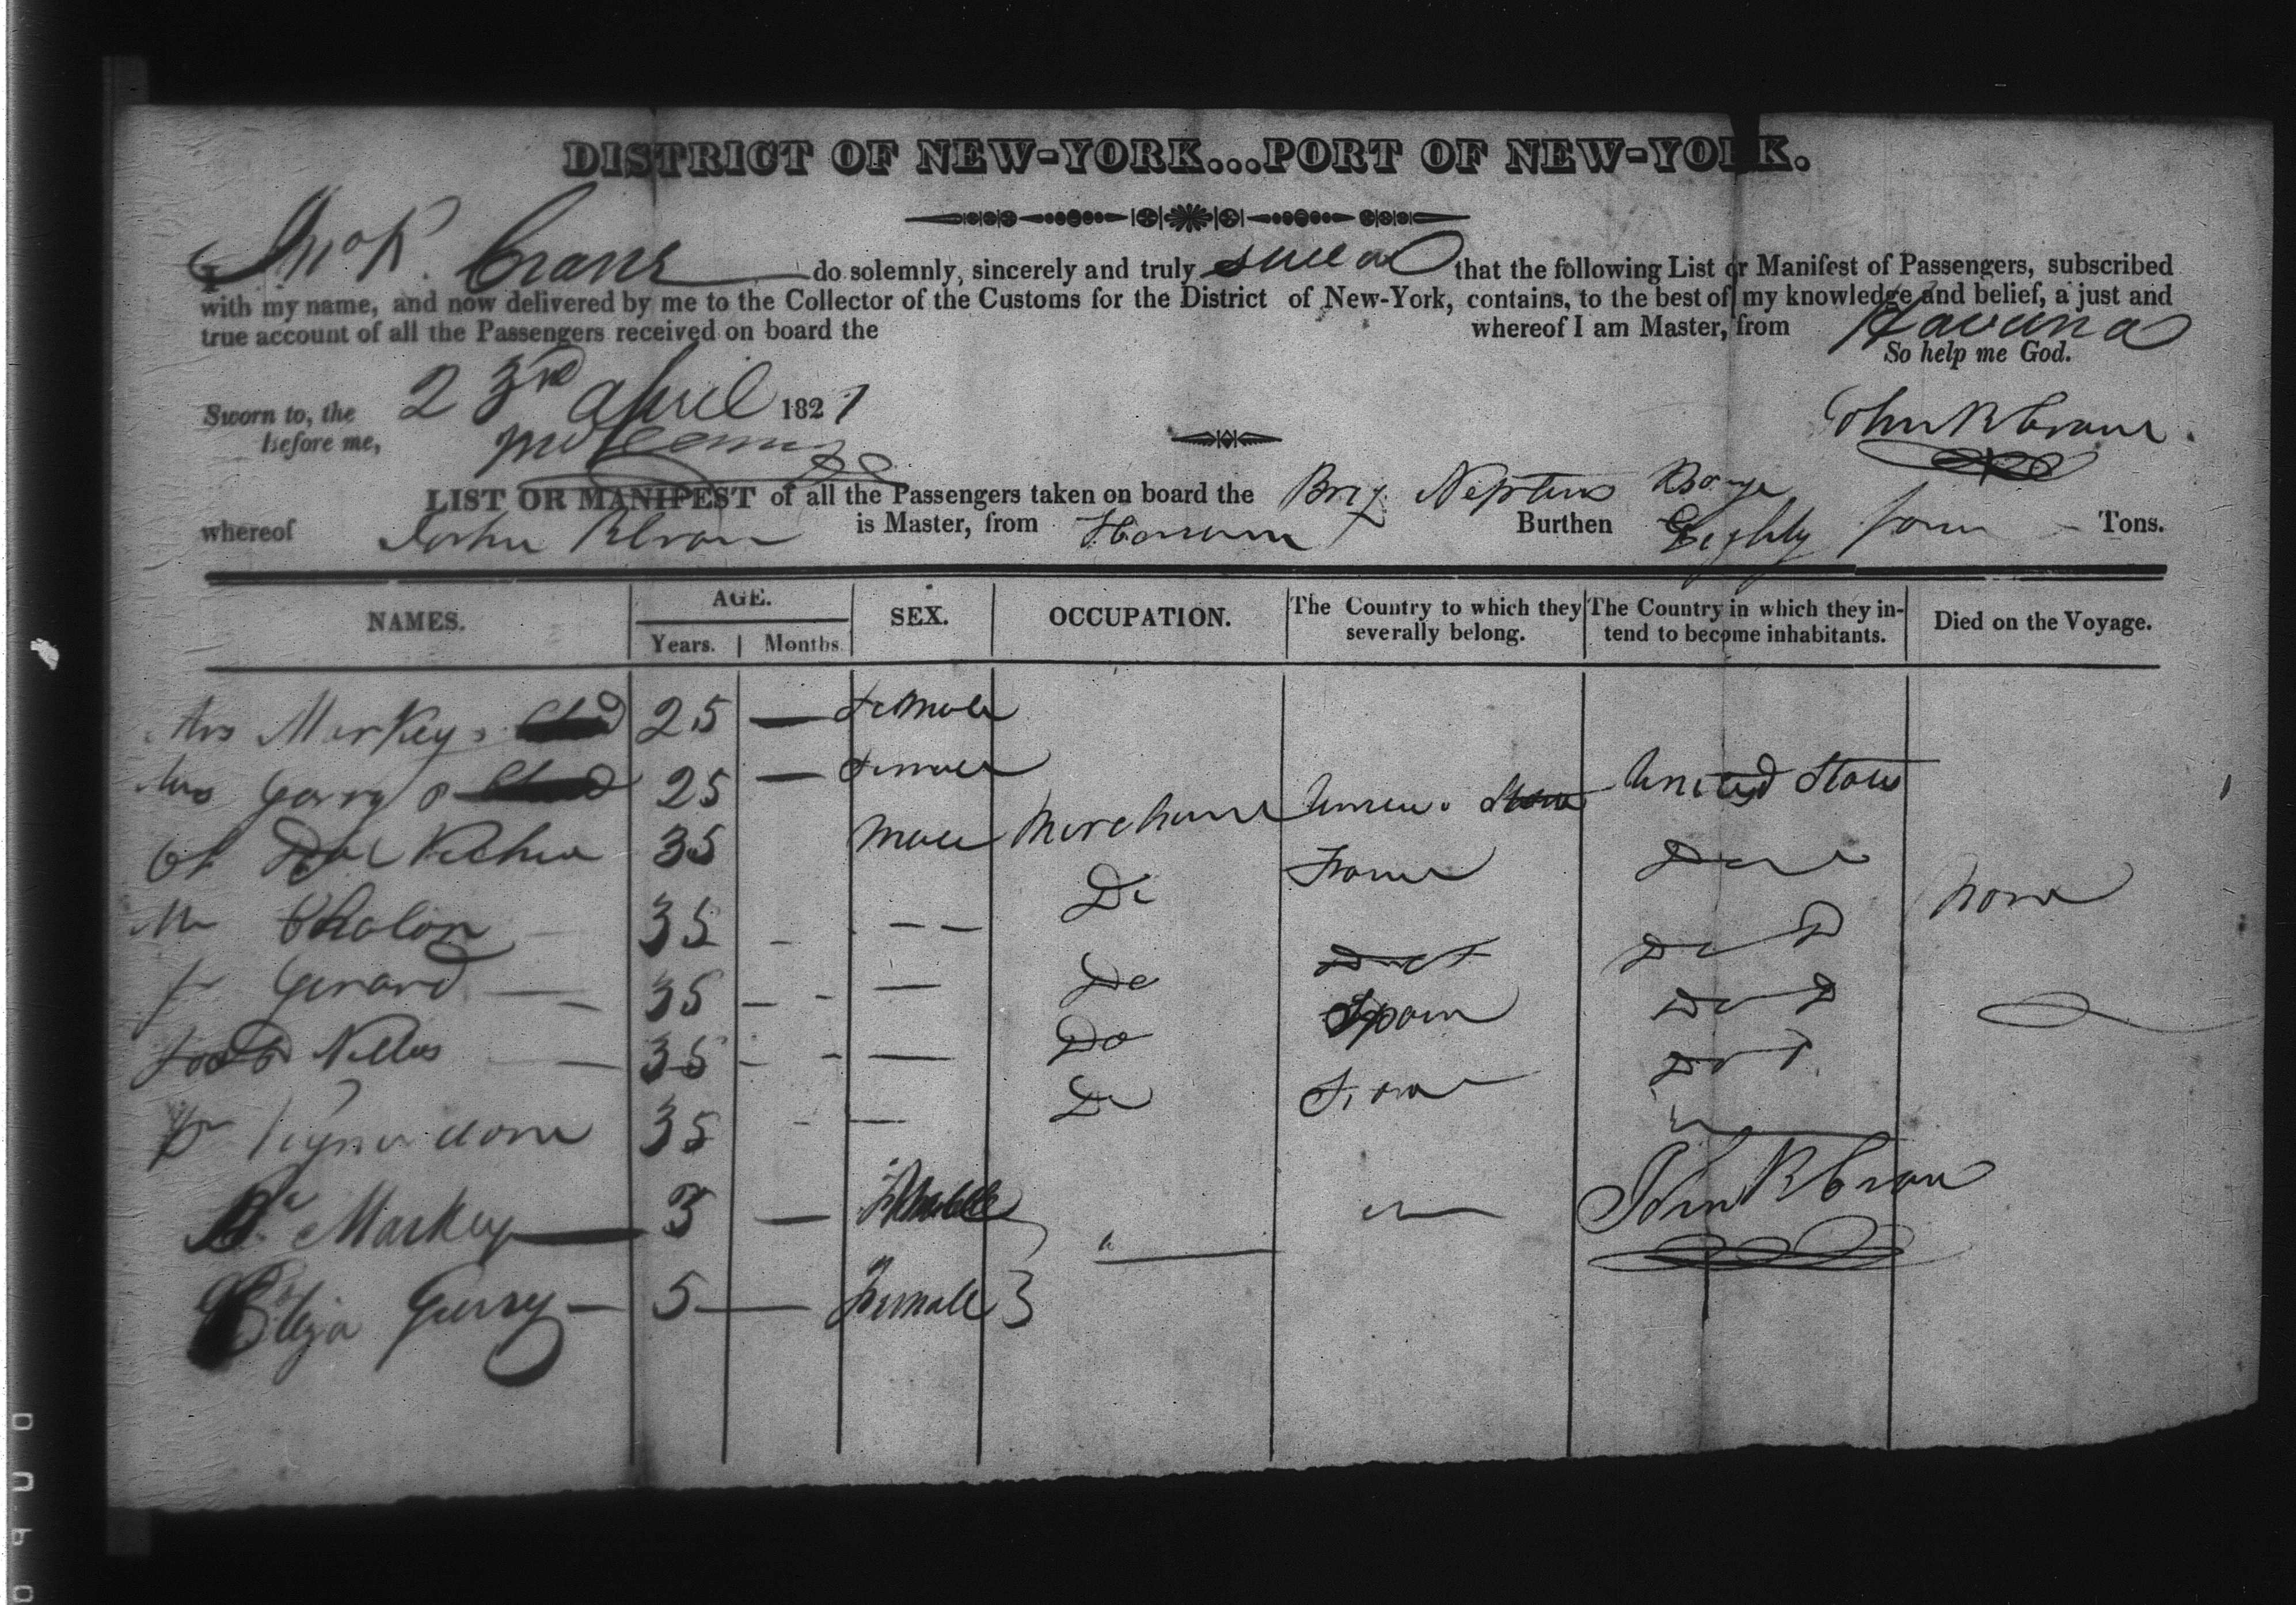 DISTRICT OF NEW-YORK...PORT OF NEW-YORK.
I Jno R. Crane do solemnly, sincerely and truly swear that the following List or Manifest of Passengers, subscribed
with my name, and now delivered by me to the Collector of the Customs for the District of New-York, contains, to the best of my knowledge and belief, a just and
true account of all the Passengers received on board the whereof I am Master, from Havana
So help me God.
Sworn to, the 23rd April 1821
Before me,
John R Crane
LIST OR MANIFEST of all the Passengers taken on board the Brig Neptuns Barge
whereof John R Cran is Master, from Havana Burthen Eighty four Tons.
NAMES. AGE. SEX. OCCUPATION. The Country to which they severally belong. The Country in which they intend to become inhabitants. Died on the Voyage.
Years. Months.
Mrs Markey 25 — Female
Mrs Garry 25 — Female United States
35 Male Merchant States
Mr Chalon 35 - - - - Do France
Gerard 35 - - — Do
35 - - — Do Spain
35 - — Do
None
Markey 3 —
John R Crane
Eliza Gurry 5 — Female